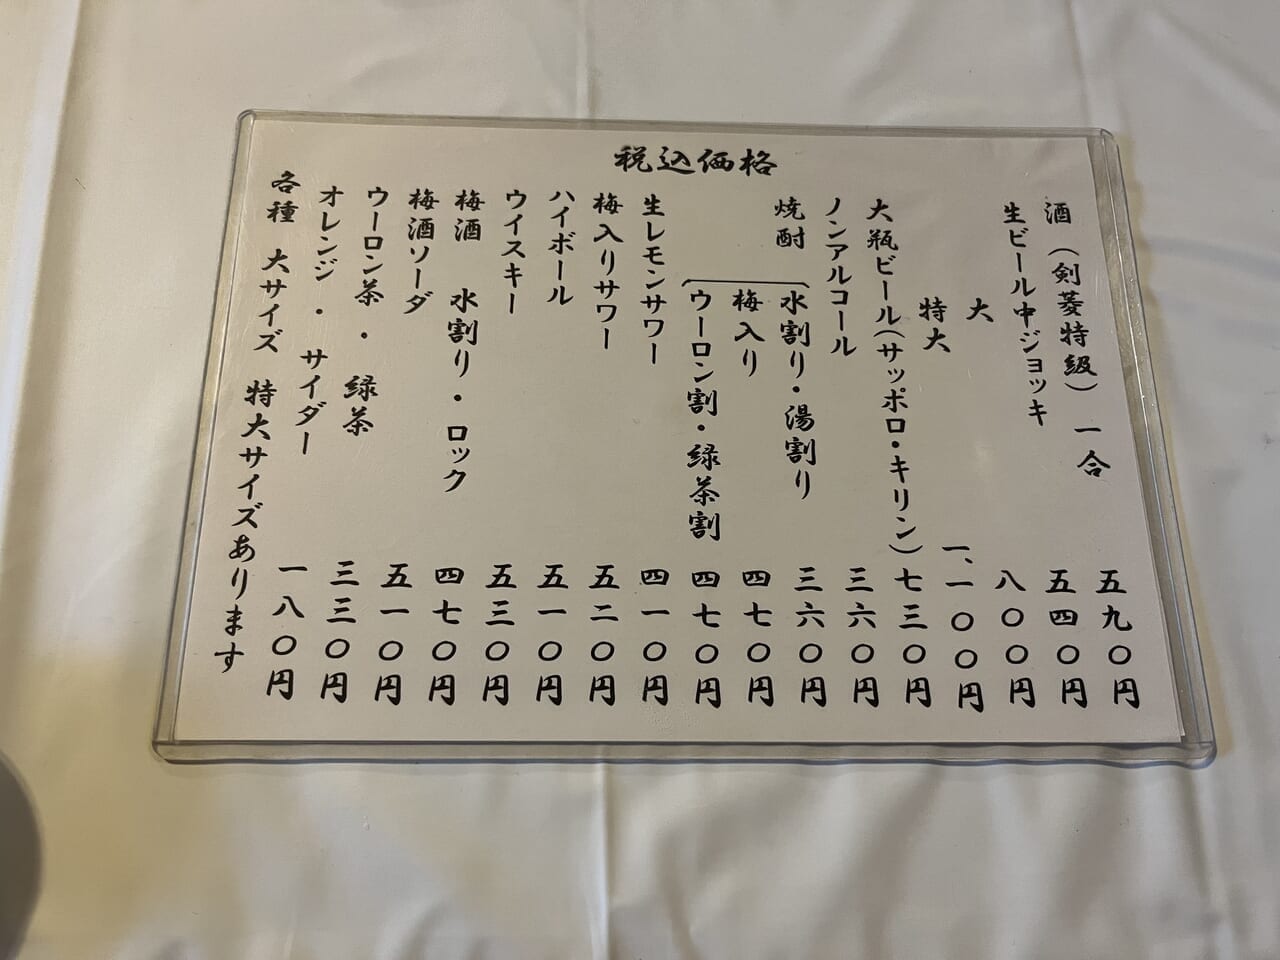 税込価格
酒（剣菱特級）一合 五九〇円
生ビール中ジョッキ 五四〇円
大 八〇〇円
特大 一、一〇〇円
大瓶ビール（サッポロ・キリン） 七三〇円
ノンアルコール 三六〇円
焼酎 水割り・湯割り 三六〇円
梅入り 四七〇円
ウーロン割・緑茶割 四七〇円
生レモンサワー 四一〇円
梅入りサワー 五二〇円
ハイボール 五一〇円
ウイスキー 五三〇円
梅酒 水割り・ロック 四七〇円
梅酒ソーダ 五一〇円
ウーロン茶・緑茶 三三〇円
オレンジ・サイダー 一八〇円
各種 大サイズ 特大サイズあります